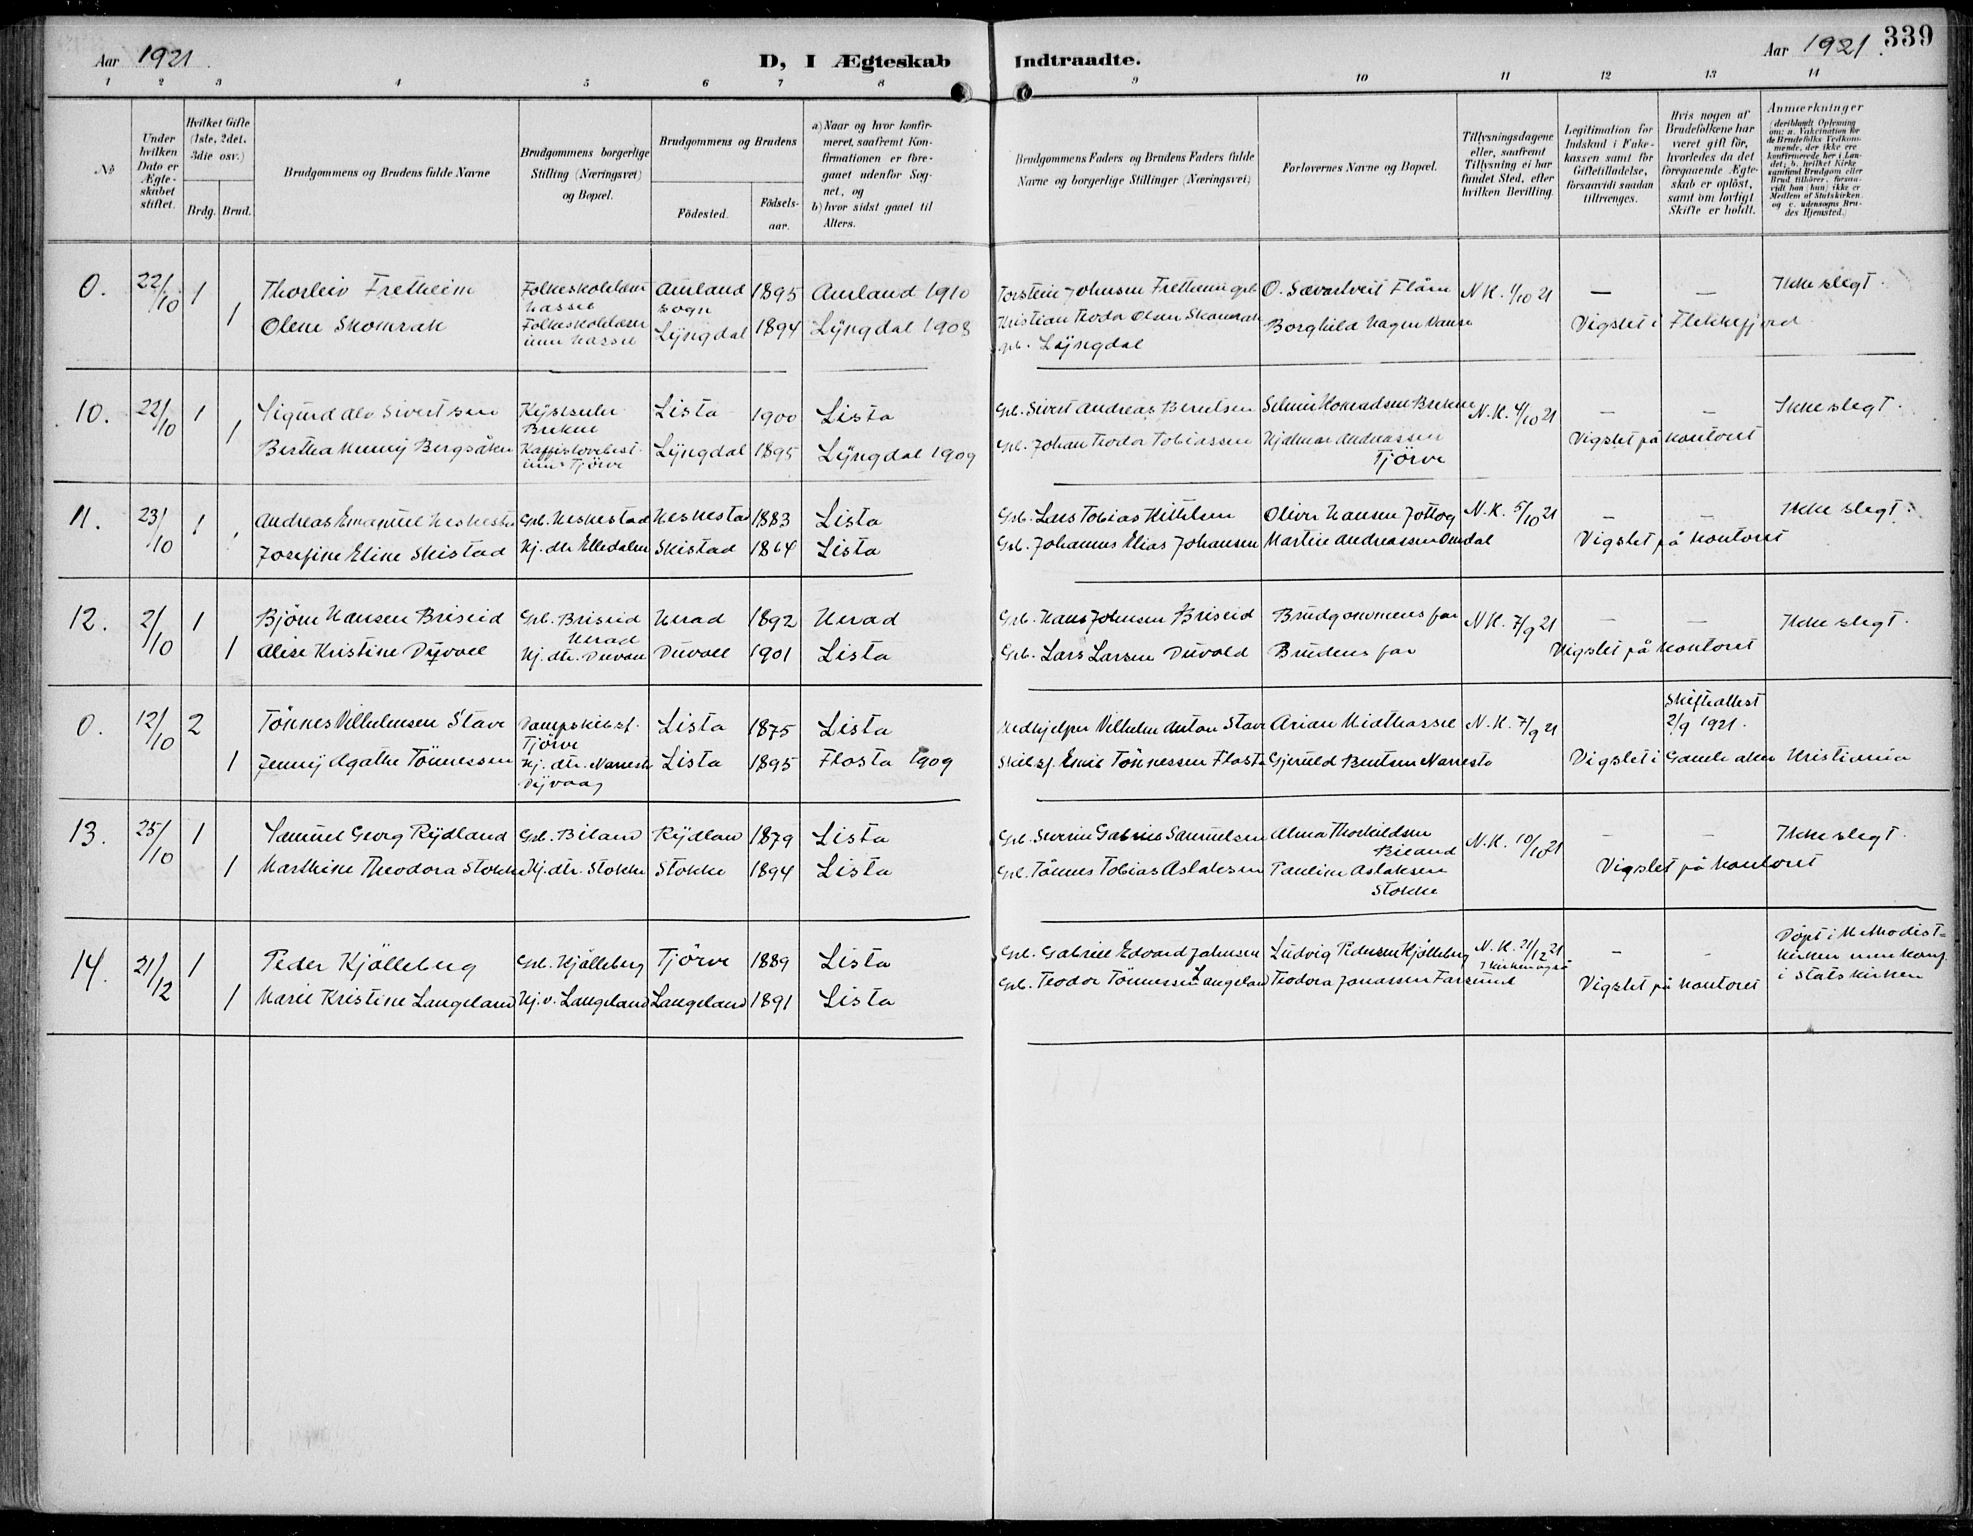 Aar 1921.
D, I Ægteskab Indtraadte.
Aar 1921.
339
1 2 3 4 5 6 7 8 9 10 11 12 13 14
No
Under hvilken Dato er Ægteskabet stiftet.
Hvilket Gifte (1ste, 2det, 3die osv.)
Brdg. Brud.
Brudgommens og Brudens fulde Navne
Brudgommens borgerlige Stilling (Næringsvei) og Bopæl.
Brudgommens og Brudens
Födested.
Födsels-aar.
a) Naar og hvor konfirmeret, saafremt Konfirmationen er foregaaet udenfor Sognet, og
b) hvor sidst gaaet til Alters.
Brudgommens Faders og Brudens Faders fulde Navne og borgerlige Stillinger (Næringsvei)
Forlovernes Navne og Bopæl.
Tillysningsdagene eller, saafremt Tillysning ei har fundet Sted, efter hvilken Bevilling
Legitimation for Indskud i Enkekassen samt for Giftetilladelse, forsaavidt saadan tiltrænges.
Hvis nogen af Brudefolkene har været gift før, hvorledes da det foregaaende Ægteskab er opløst, samt om lovligt Skifte er holdt.
Anmærkninger (deriblandt Oplysning om: a. Vakcination for de Brudefolks Vedkommende, der ikke ere konfirmerede her i Landet; b. hvilket Kirkesamfund Brudgom eller Brud tilhører, forsaavidt han (hun) ikke er Medlem af Statskirken, og c. udensogns Brudes Hjemsted.)
0. 22/10 1 Thorleiv Fretheim Aurland Sogn 1895 Aurland 1910 Torstein Johnsen Fretheim gbr. O. Sævartveit Flåm N.K. 4/10 21 — — Ikke slegt.
1 Olene Skomrak Lyngdal 1894 Lyngdal 1908 Kristian Teodor Olsen Skomrak gbr. Lyngdal Borghild Hagen Vanse Vigslet i Flekkefjord
10. 22/10 1 Sigurd Alv Sivertsen Brekne Lista 1900 Lista Gbr. Sivert Andreas Berntsen N.K. 4/10 21 — — Ikke slegt.
1 Bertha Henny Bergsåker Tjörve Lyngdal 1895 Lyngdal 1909 Gbr. Johan Teodor Tobiassen Hjalmar Andreassen Tjörve Vigslet på kontoret
11. 23/10 1 Andreas Emanuel Heskestad Gbr. Heskestad Heskestad 1883 Lista Gbr. Lars Tobias Kittelsen Oliver Hansen Jottog N.K. 5/10 21 — — Ikke slegt.
1 Josefine Eline Skistad Hj. dtr. Elledalen Skistad 1864 Lista Gbr. Johannes Elias Johansen Martin Andreassen Omdal Vigslet på kontoret
12. 2/10 1 Björn Hansen Briseid Gbr. Briseid Herad Herad 1892 Herad Gbr. Hans Johnsen Briseid Brudgommens far N.K. 7/9 21 — — Ikke slegt.
1 Alise Kristine Dyvoll Hj. dtr. Duvoll Duvoll 1901 Lista Gbr. Lars Larsen Duvold Brudens far Vigslet på kontoret
0. 12/10 2 Tönnes Vilhelmsen Stave Dampskibsf. Tjörve Lista 1875 Lista Vilhelm Anton Stave Arian Midthassel N.K. 7/9 21 Skifteattest 2/9 1921.
1 Jenny Agathe Tönnessen Hj. dtr. Narrestø Dyvaag Lista 1895 Flosta 1909 Skibsf. Emil Tönnessen Flosta Gjeruld Bentsen Narrestø Vigslet i Gamle aker Kristiania
13. 25/10 1 Samuel Georg Rydland Gbr. Biland Rydland 1879 Lista Gbr. Severin Gabriel Samuelsen Alma Thorkildsen Biland N.K. 10/10 21 — — Ikke slegt.
1 Marthine Theodora Stokke Hj. dtr. Stokke Stokke 1894 Lista Gbr. Tönnes Tobias Aslaksen Pauline Aslaksen Stokke Vigslet på kontoret
14. 21/12 1 Peder Kjölleberg Gbr. Kjölleberg Tjörve 1889 Lista Gbr. Gabriel Edvard Johnsen Ludvig Pedersen Kjölleberg N.K. 21/12 21 I kirken også — — Döpt i Methodist-kirken men konf. i Statskirken
1 Marie Kristine Langeland Hj. v. Langeland Langeland 1891 Lista Gbr. Teodor Tönnessen Langeland Teodora Jonassen Farsund Vigslet på kontoret